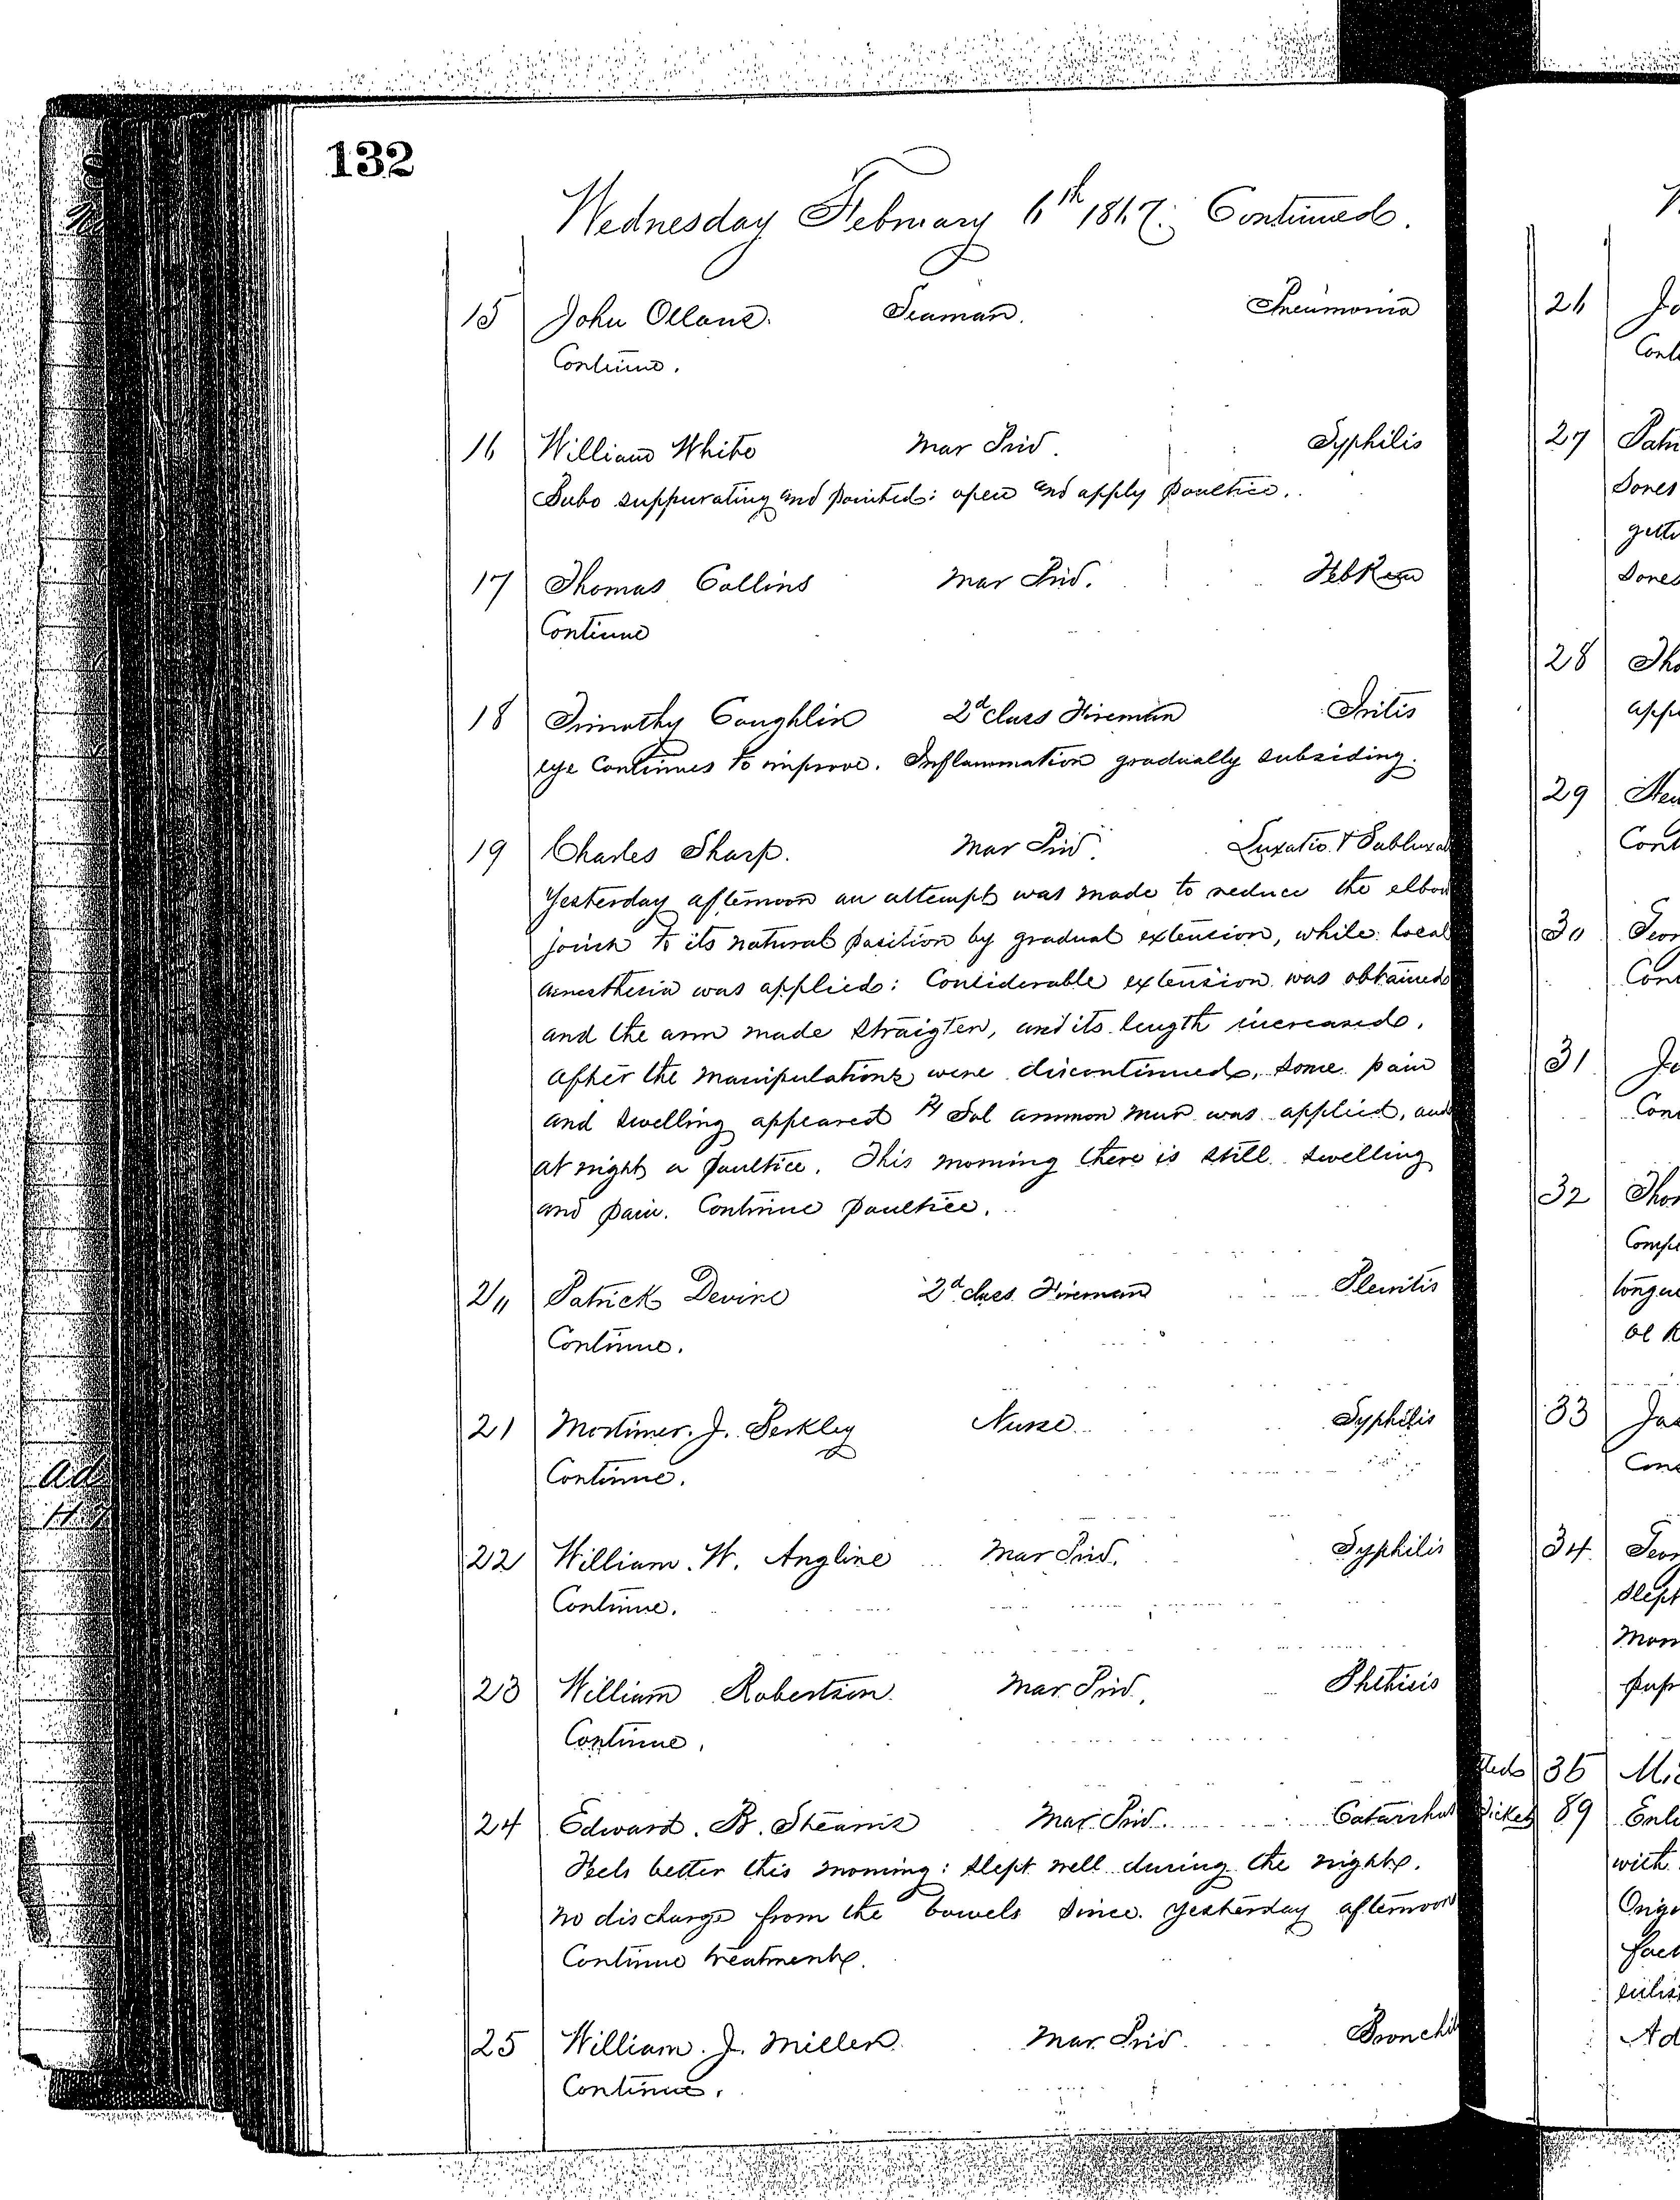 132
Wednesday February 6th 1867. Continued.
15 John Ollane. Seaman. Pneumonia
Continue.
16 William White Mar Priv. Syphilis
Bubo suppurating and pointed: open and apply poultice.
17 Thomas Collins Mar Priv. Feb Rem
Continue
18 Timothy Coughlin 2d Class Fireman Iritis
eye Continues to improve. Inflammation gradually subsiding.
19 Charles Sharp. Mar Priv. Luxatio & Subluxat
Yesterday afternoon an attempt was made to reduce the elbow
joint to its natural position by gradual extension, while local
anesthesia was applied: Considerable extension was obtained
and the arm made straigten, and its length increased.
After the manipulations were discontinued, some pain
and swelling appeared ℞ Sol ammon mur was applied, and
at night a poultice. This morning there is still swelling
and pain. Continue poultice.
20 Patrick Devine 2d class Fireman Pleuritis
Continue.
21 Mortimer. J. Berkley Nurse Syphilis
Continue.
22 William. W. Angline Mar Priv. Syphilis
Continue.
23 William Robertson. Mar Priv. Phthisis
Continue.
24 Edward. B. Stearns Mar Priv. Catarrhus
Feels better this morning: slept well during the night.
no discharge from the bowels since yesterday afternoon
Continue treatment.
25 William. J. Miller. Mar Priv. Bronchit
Continue.
26 Jo
Cont
27 Patri
Sores
gett
Sores
28 Tho
app
29 Hen
Cont
30 Geor
Cont
31 Jo
Con
32 Thom
Comp
tongue
33 Jas
Con
34 Geor
Slept
Mor
35 Mic
Ticket 89 Enl
with
Orig
fac
enlis
Ad